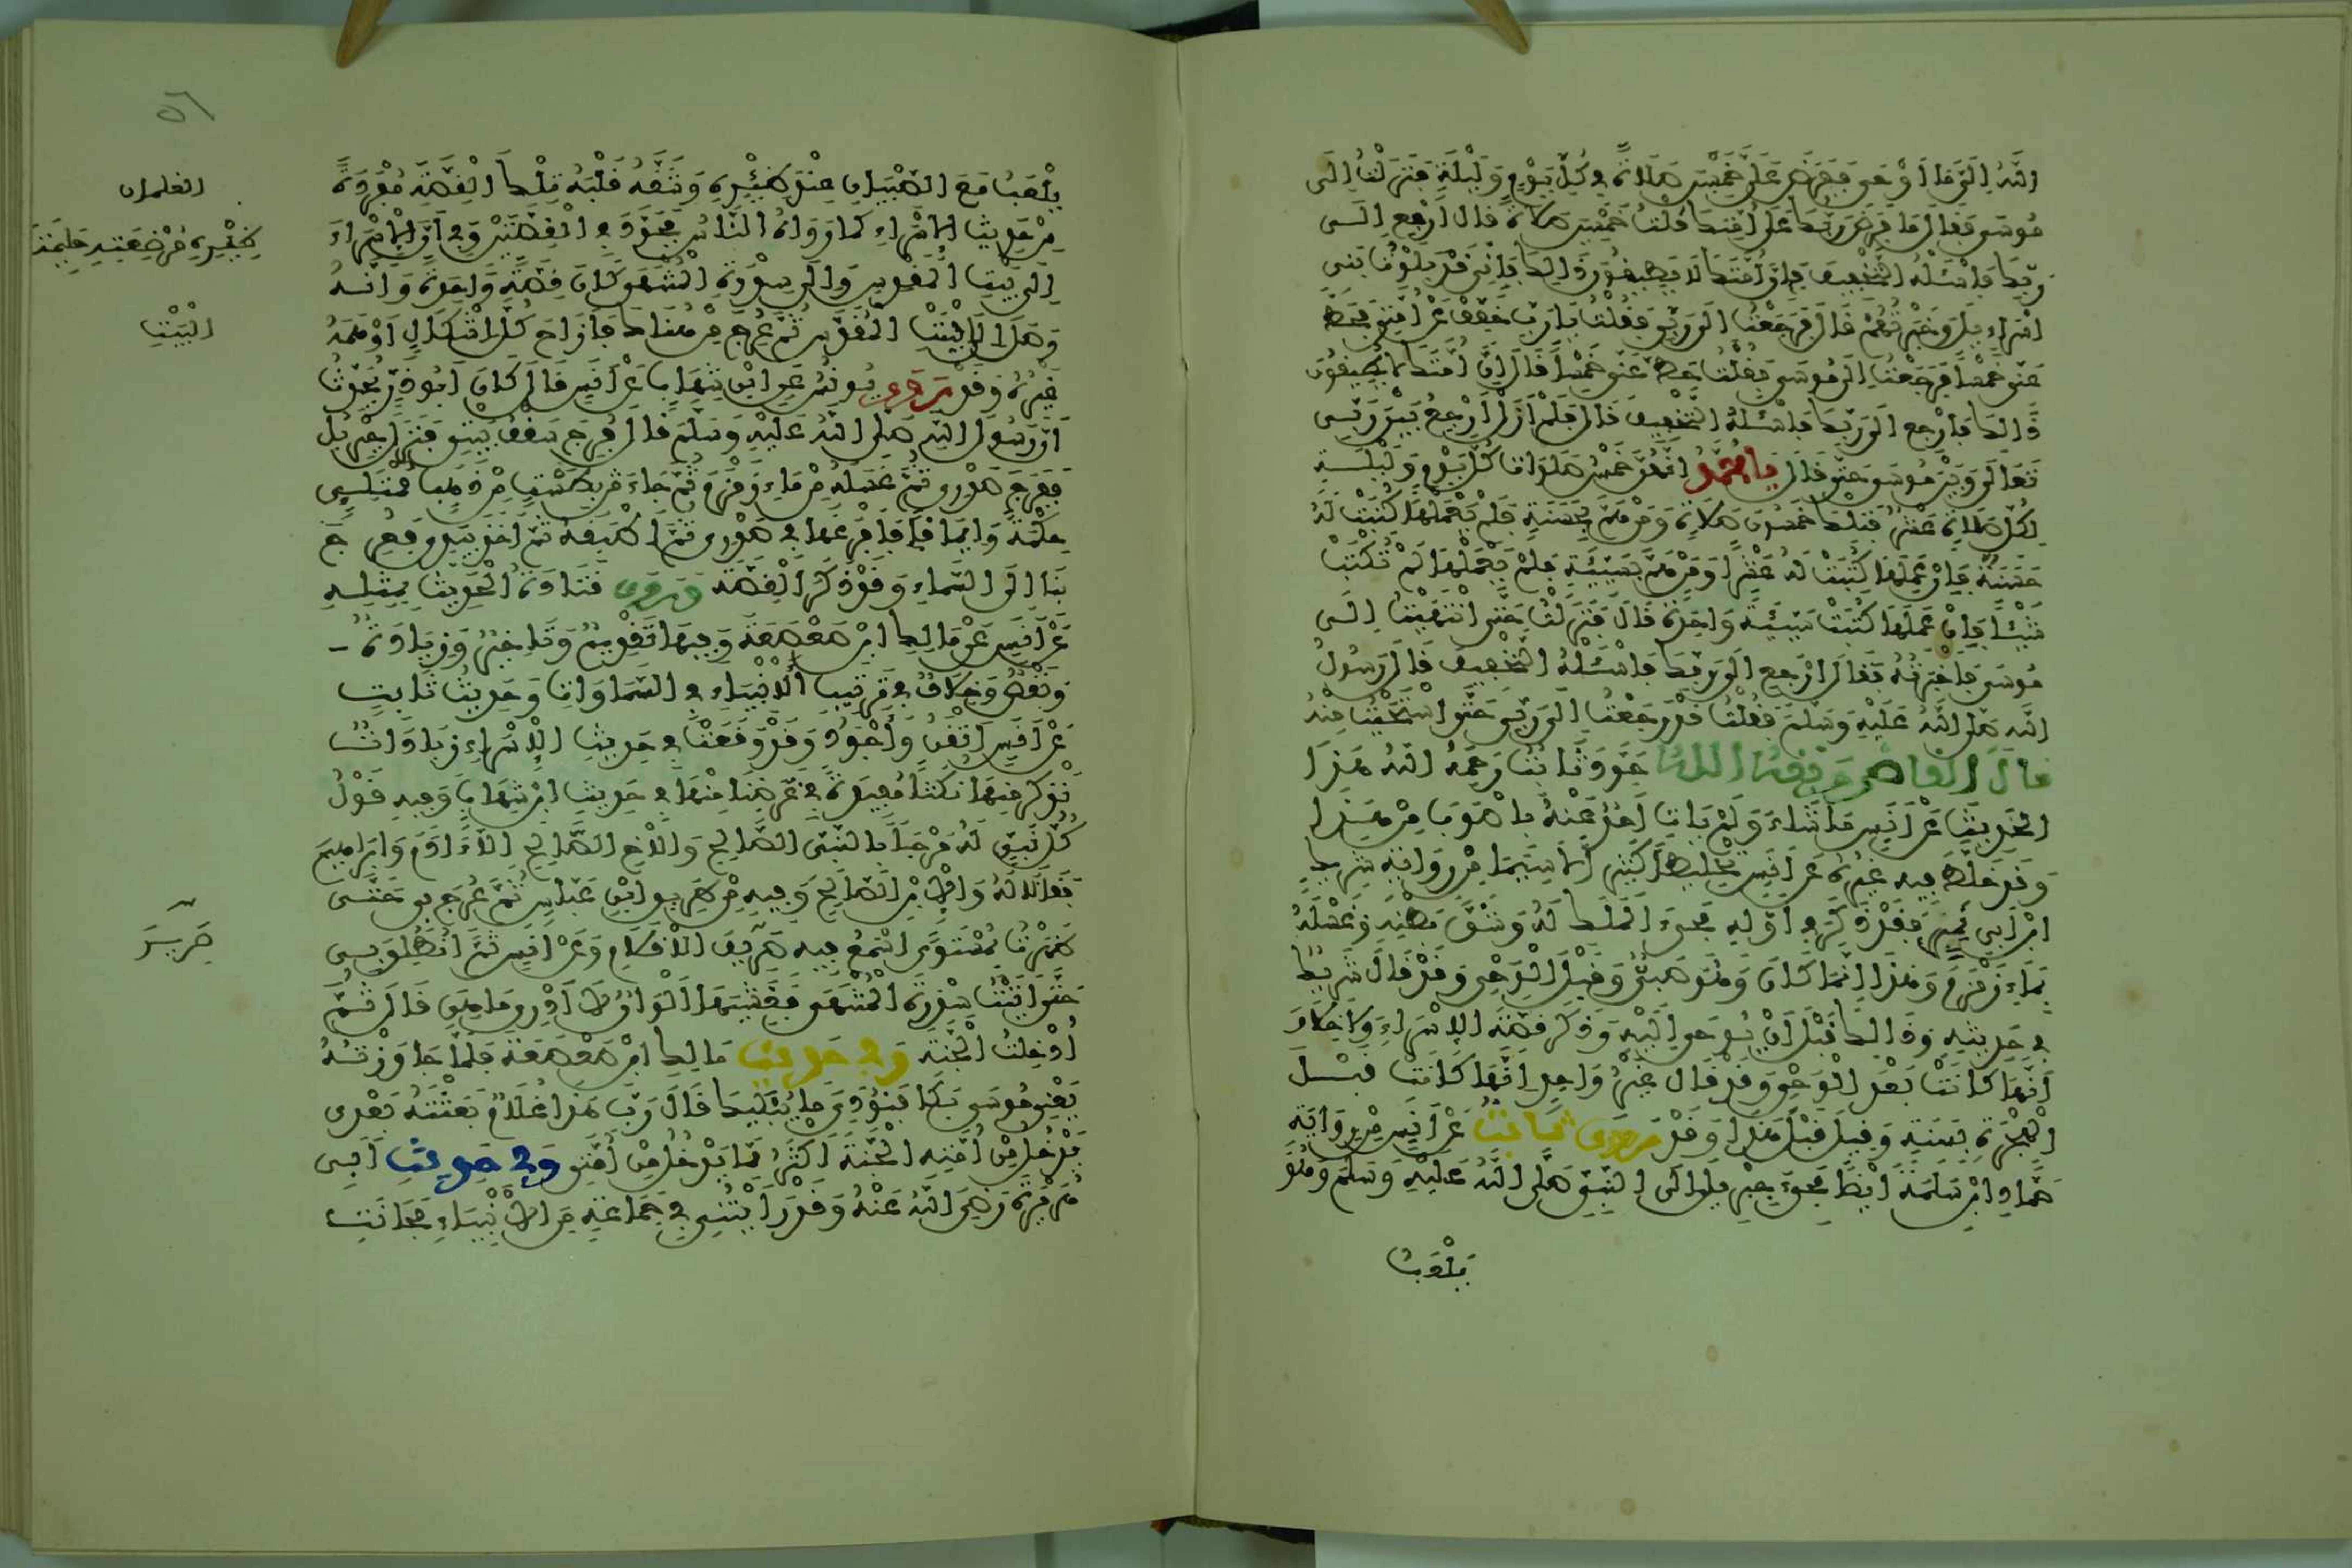 اللَّهُ إِلَيَّ مَا أَوْحَى فَفَرَضَ عَلَيَّ خَمْسِينَ صَلَاةً فِي كُلِّ يَوْمٍ وَلَيْلَةٍ فَنَزَلْتُ إِلَى
مُوسَى فَقَالَ مَا فَرَضَ رَبُّكَ عَلَى أُمَّتِكَ قُلْتُ خَمْسِينَ صَلَاةً قَالَ ارْجِعْ إِلَى
رَبِّكَ فَاسْئَلْهُ التَّخْفِيفَ فَإِنَّ أُمَّتَكَ لَا يُطِيقُونَ ذَلِكَ فَإِنِّي قَدْ بَلَوْتُ بَنِي
إِسْرَاءِيلَ وَخَبَرْتُهُمْ قَالَ فَرَجَعْتُ إِلَى رَبِّي فَقُلْتُ يَا رَبِّ خَفِّفْ عَنْ أُمَّتِي فَحَطَّ
عَنِّي خَمْسًا فَرَجَعْتُ إِلَى مُوسَى فَقُلْتُ حَطَّ عَنِّي خَمْسًا قَالَ إِنَّ أُمَّتَكَ لَا يُطِيقُونَ
ذَلِكَ فَارْجِعْ إِلَى رَبِّكَ فَاسْئَلْهُ التَّخْفِيفَ قَالَ فَلَمْ أَزَلْ أَرْجِعُ بَيْنَ رَبِّي
تَعَالَى وَبَيْنَ مُوسَى حَتَّى قَالَ يَا مُحَمَّدُ إِنَّهُنَّ خَمْسُ صَلَوَاتٍ كُلَّ يَوْمٍ وَلَيْلَةٍ
لِكُلِّ صَلَاةٍ عَشْرٌ فَتِلْكَ خَمْسُونَ صَلَاةً وَمَنْ هَمَّ بِحَسَنَةٍ فَلَمْ يَعْمَلْهَا كُتِبَتْ لَهُ
حَسَنَةً فَإِنْ عَمِلَهَا كُتِبَتْ لَهُ عَشْرًا وَمَنْ هَمَّ بِسَيِّئَةٍ فَلَمْ يَعْمَلْهَا لَمْ تُكْتَبْ
شَيْئًا فَإِنْ عَمِلَهَا كُتِبَتْ سَيِّئَةً وَاحِدَةً قَالَ فَنَزَلْتُ حَتَّى انْتَهَيْتُ إِلَى
مُوسَى فَأَخْبَرْتُهُ فَقَالَ ارْجِعْ إِلَى رَبِّكَ فَاسْئَلْهُ التَّخْفِيفَ فَقَالَ رَسُولُ
اللَّهِ صَلَّى اللَّهُ عَلَيْهِ وَسَلَّمَ فَقُلْتُ قَدْ رَجَعْتُ إِلَى رَبِّي حَتَّى اسْتَحْيَيْتُ مِنْهُ
قَالَ الْقَاضِي وَفَّقَهُ اللَّهُ جَوَّدَ ثَابِتٌ رَحِمَهُ اللَّهُ هَذَا
الْحَدِيثَ عَنْ أَنَسٍ مَا شَاءَ وَلَمْ يَأْتِ أَحَدٌ عَنْهُ بِأَصْوَبَ مِنْ هَذَا
وَقَدْ خَلَّطَ فِيهِ غَيْرُهُ عَنْ أَنَسٍ تَخْلِيطًا كَثِيرًا لَا سِيَّمَا مِنْ رِوَايَةِ شَرِيكِ
ابْنِ أَبِي نَمِرٍ فَقَدْ ذَكَرَ فِي أَوَّلِهِ مَجِيءَ الْمَلَكِ لَهُ وَشَقَّ بَطْنِهِ وَغَسْلَهُ
بِمَاءِ زَمْزَمَ وَهَذَا إِنَّمَا كَانَ وَهُوَ صَبِيٌّ وَقَبْلَ الْوَحْيِ وَقَدْ قَالَ شَرِيكٌ
فِي حَدِيثِهِ وَذَلِكَ قَبْلَ أَنْ يُوحَى إِلَيْهِ وَذَكَرَ قِصَّةَ الْإِسْرَاءِ وَلَا خِلَافَ
أَنَّهَا كَانَتْ بَعْدَ الْوَحْيِ وَقَدْ قَالَ غَيْرُ وَاحِدٍ إِنَّهَا كَانَتْ قَبْلَ
الْهِجْرَةِ بِسَنَةٍ وَقِيلَ قَبْلَ هَذَا وَقَدْ رَوَى ثَابِتٌ عَنْ أَنَسٍ مِنْ رِوَايَةِ
حَمَّادِ ابْنِ سَلَمَةَ أَيْضًا مَجِيءَ جِبْرِيلَ إِلَى النَّبِيِّ صَلَّى اللَّهُ عَلَيْهِ وَسَلَّمَ وَهُوَ
يَلْعَبُ
٥٦
يَلْعَبُ مَعَ الصِّبْيَانِ عِنْدَ ظِئْرِهِ وَشَقَّهُ قَلْبَهُ تِلْكَ الْقِصَّةَ مُفْرَدَةً
مِنْ حَدِيثِ الْإِسْرَاءِ كَمَا رَوَاهُ النَّاسُ فَجَوَّدَ فِي الْقِصَّتَيْنِ وَفِي أَنَّ الْإِسْرَاءَ
إِلَى بَيْتِ الْمَقْدِسِ وَإِلَى سِدْرَةِ الْمُنْتَهَى كَانَ قِصَّةً وَاحِدَةً وَأَنَّهُ
وَصَلَ إِلَى بَيْتِ الْمَقْدِسِ ثُمَّ عُرِجَ مِنْ هُنَاكَ فَأَزَاحَ كُلَّ إِشْكَالٍ أَوْهَمَهُ
غَيْرُهُ وَقَدْ رَوَى يُونُسُ عَنِ ابْنِ شِهَابٍ عَنْ أَنَسٍ قَالَ كَانَ أَبُو ذَرٍّ يُحَدِّثُ
أَنَّ رَسُولَ اللَّهِ صَلَّى اللَّهُ عَلَيْهِ وَسَلَّمَ قَالَ فُرِجَ سَقْفُ بَيْتِي فَنَزَلَ جِبْرِيلُ
فَفَرَجَ صَدْرِي ثُمَّ غَسَلَهُ مِنْ مَاءِ زَمْزَمَ ثُمَّ جَاءَ مِنْ بِطَسْتٍ مِنْ ذَهَبٍ مُمْتَلِئٍ
حِكْمَةً وَإِيمَانًا فَأَفْرَغَهَا فِي صَدْرِي ثُمَّ أَطْبَقَهُ ثُمَّ أَخَذَ بِيَدِي فَعَرَجَ
بِنَا إِلَى السَّمَاءِ وَقَدْ ذَكَرَ الْقِصَّةَ وَرَوَى قَتَادَةُ الْحَدِيثَ بِمِثْلِهِ
عَنْ أَنَسٍ عَنْ مَالِكِ ابْنِ صَعْصَعَةَ وَفِيهَا تَقْدِيمٌ وَتَأْخِيرٌ وَزِيَادَةٌ
وَنَقْصٌ وَخِلَافٌ فِي تَرْتِيبِ الْأَنْبِيَاءِ فِي السَّمَاوَاتِ وَحَدِيثُ ثَابِتٍ
عَنْ أَنَسٍ أَتْقَنُ وَأَجْوَدُ وَقَدْ وَقَعَتْ فِي حَدِيثِ الْإِسْرَاءِ زِيَادَاتٌ
نَذْكُرُ مِنْهَا نُكَتًا مُفِيدَةً فِي غَرَضِنَا مِنْهَا فِي حَدِيثِ ابْنِ شِهَابٍ وَفِيهِ قَوْلُ
كُلِّ نَبِيٍّ لَهُ مَرْحَبًا بِالنَّبِيِّ الصَّالِحِ وَالْأَخِ الصَّالِحِ إِلَّا آدَمَ وَإِبْرَاهِيمَ
فَقَالَا لَهُ وَالِابْنِ الصَّالِحِ وَفِيهِ مِنْ طَرِيقِ ابْنِ عَبَّاسٍ ثُمَّ عُرِجَ بِي حَتَّى
ظَهَرْتُ لِمُسْتَوًى أَسْمَعُ فِيهِ صَرِيفَ الْأَقْلَامِ وَعَنْ أَنَسٍ ثُمَّ انْطُلِقَ بِي
حَتَّى أَتَيْتُ سِدْرَةَ الْمُنْتَهَى فَغَشِيَهَا أَلْوَانٌ لَا أَدْرِي مَا هِيَ قَالَ ثُمَّ
أُدْخِلْتُ الْجَنَّةَ وَفِي حَدِيثِ مَالِكِ ابْنِ صَعْصَعَةَ فَلَمَّا جَاوَزْتُهُ
يَعْنِي مُوسَى بَكَى فَنُودِيَ مَا يُبْكِيكَ قَالَ رَبِّ هَذَا غُلَامٌ بَعَثْتَهُ بَعْدِي
يَدْخُلُ مِنْ أُمَّتِهِ الْجَنَّةَ أَكْثَرُ مِمَّا يَدْخُلُ مِنْ أُمَّتِي وَفِي حَدِيثِ أَبِي
هُرَيْرَةَ رَضِيَ اللَّهُ عَنْهُ وَقَدْ رَأَيْتُنِي فِي جَمَاعَةٍ مِنَ الْأَنْبِيَاءِ فَحَانَتِ
الغلمان
الْبَيْتِ